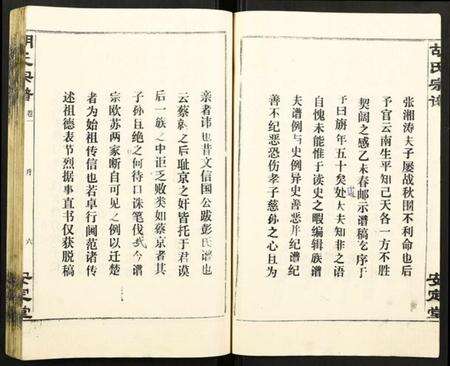 胡氏宗譜
安定堂
張湘涛夫子屡战秋圍不利命也后
予官云南生平知己天各一方不胜
契阔之感乙未春邮示谱稿乞序于
予曰旃年五十矣处大夫知非之语
自愧未能惟于读史之暇编辑族谱
夫谱例与史例异史善恶并纪谱纪
善不纪恶恐伤孝子慈孙之心且为
亲者讳也昔文信国公跋彭氏谱也
云蔡之后耻京之奸皆托于君谟
后一族之中讵乏败类如蔡京者其
子孙且绝之何待口诛笔伐我今谱
宗欧苏两家断自可见之例以迁楚
者为始祖传信也若卓行阃范诸传
述祖德表节烈据事直书仅获脱稿
胡氏宗譜
卷
序
六
安定堂